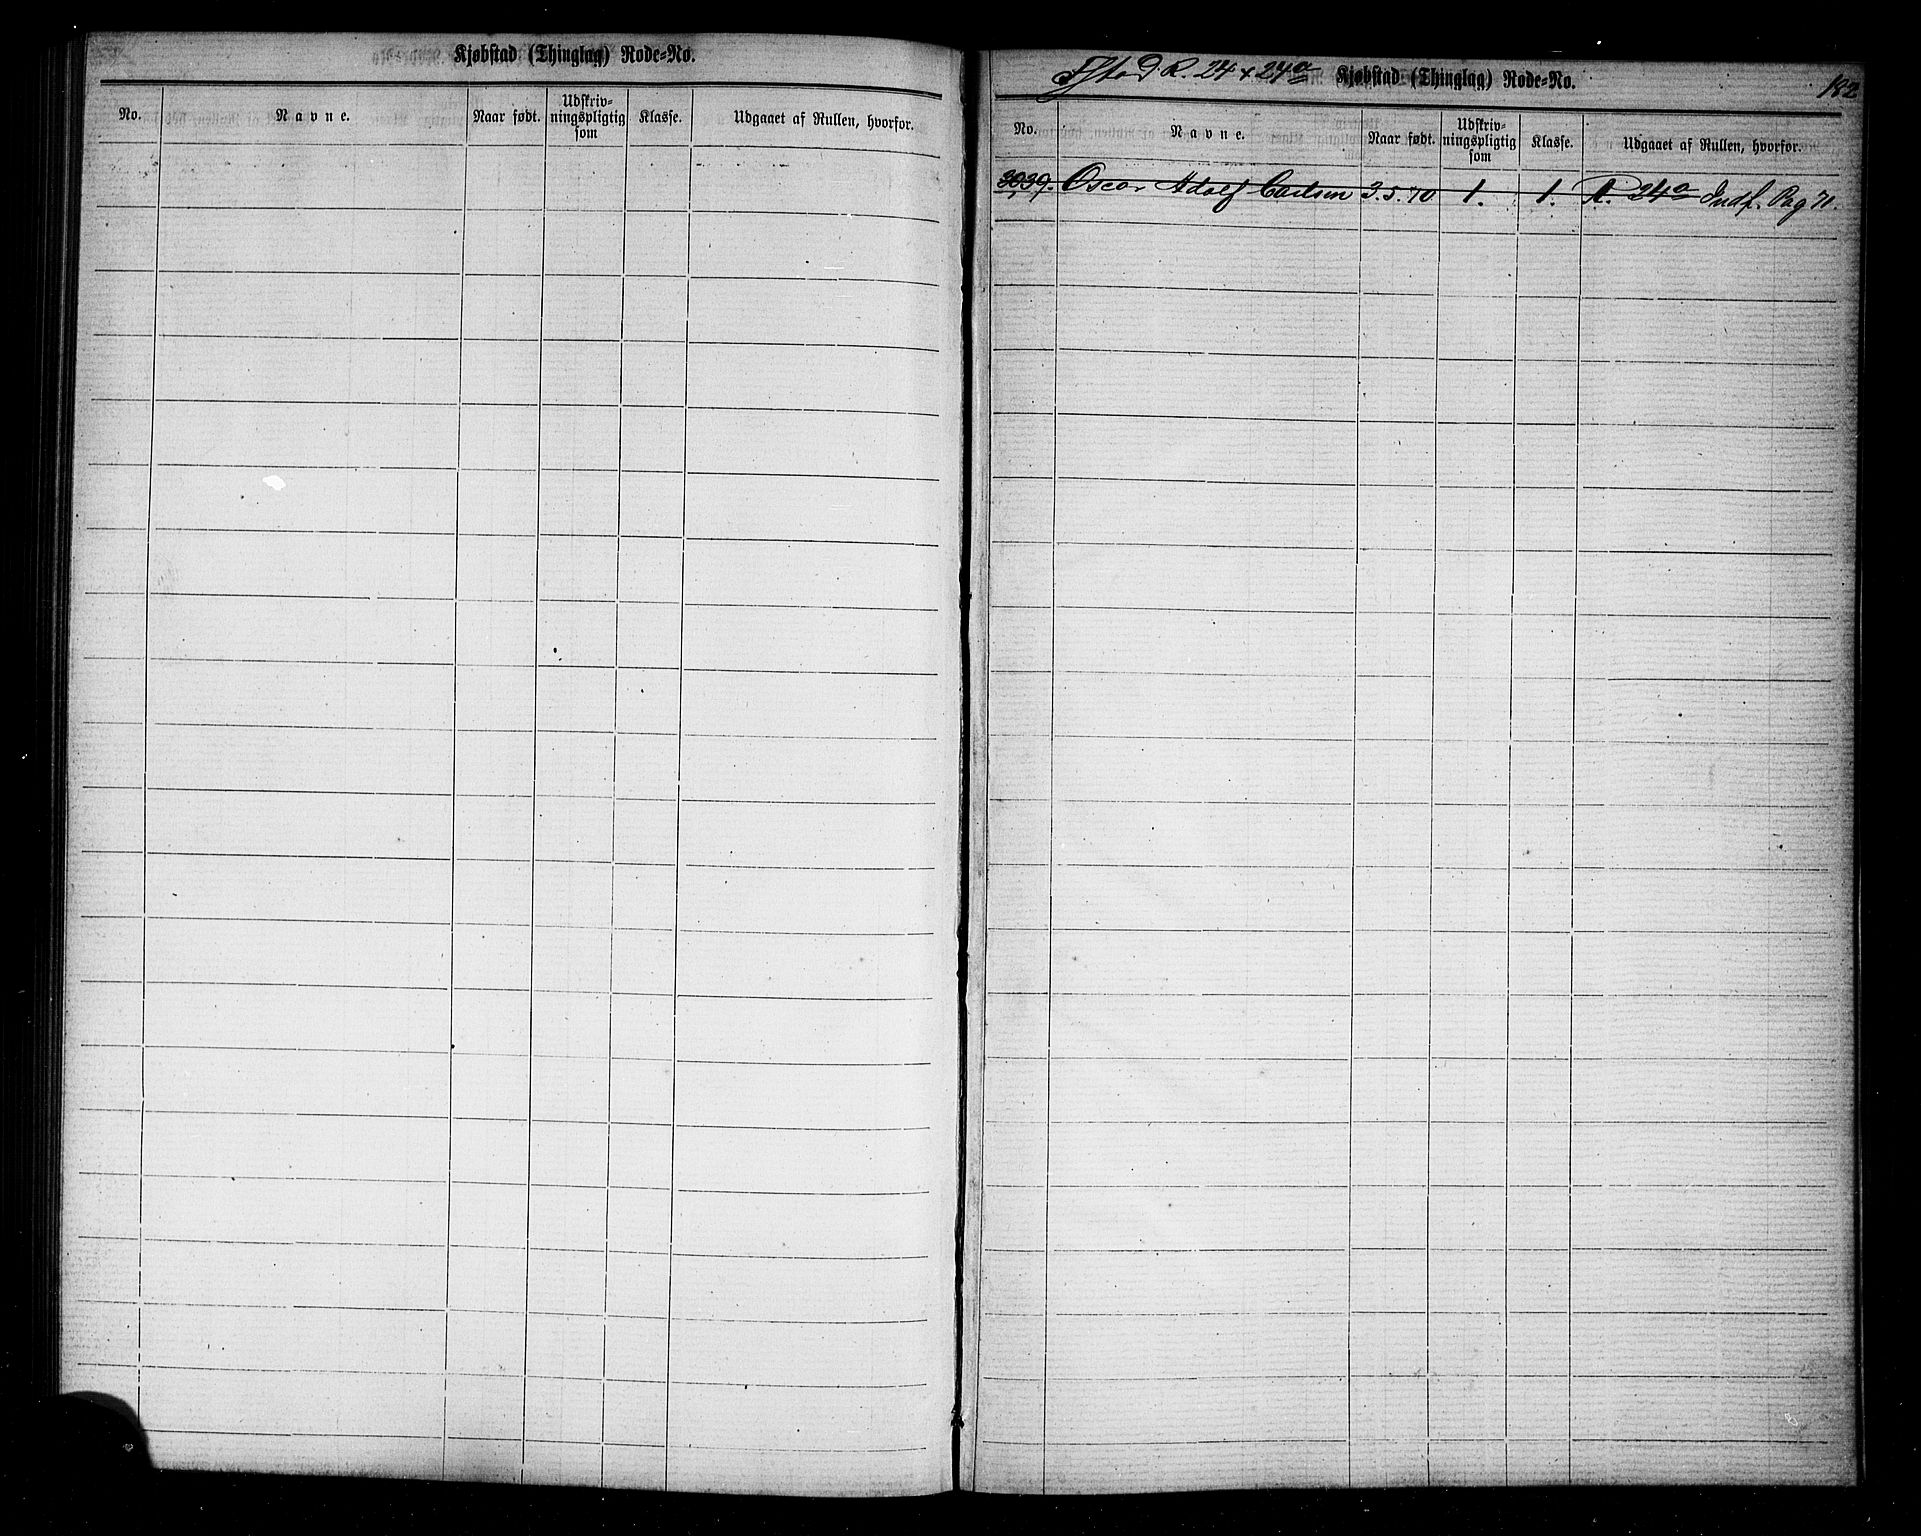 Kjøbstad (Thinglag) Rode=No.
No. Navne. Naar født. Udskriv-ningspligtig som Klasse. Udgaaet af Rullen, hvorfor.
R. 24 + 24a Kjøbstad (Thinglag) Rode=No. 182
No. Navne. Naar født. Udskriv-ningspligtig som Klasse. Udgaaet af Rullen, hvorfor.
3039. Oscar Adolf Carlsen 3.5.70 1. 1. R. 24a Indf. Pag 71.